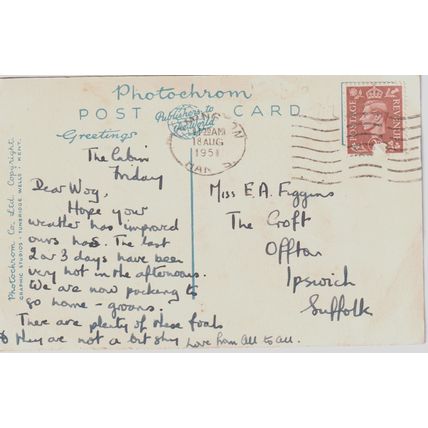 Photochrom
POST CARD
Publishers to
the World
Greetings
18 AUG
1951
POSTAGE
REVENUE
Photochrom Co. Ltd. Copyright.
GRAPHIC STUDIOS · TUNBRIDGE WELLS · KENT.
The Cabin
Friday
Dear Wog,
Hope your
weather has improved
ours has. The last
2 or 3 days have been
very hot in the afternoons.
We are now packing to
go home - groans.
There are plenty of these foals
& they are not a bit shy Love from All to All.
Miss E.A. Figgins
The Croft
Offton
Ipswich
Suffolk